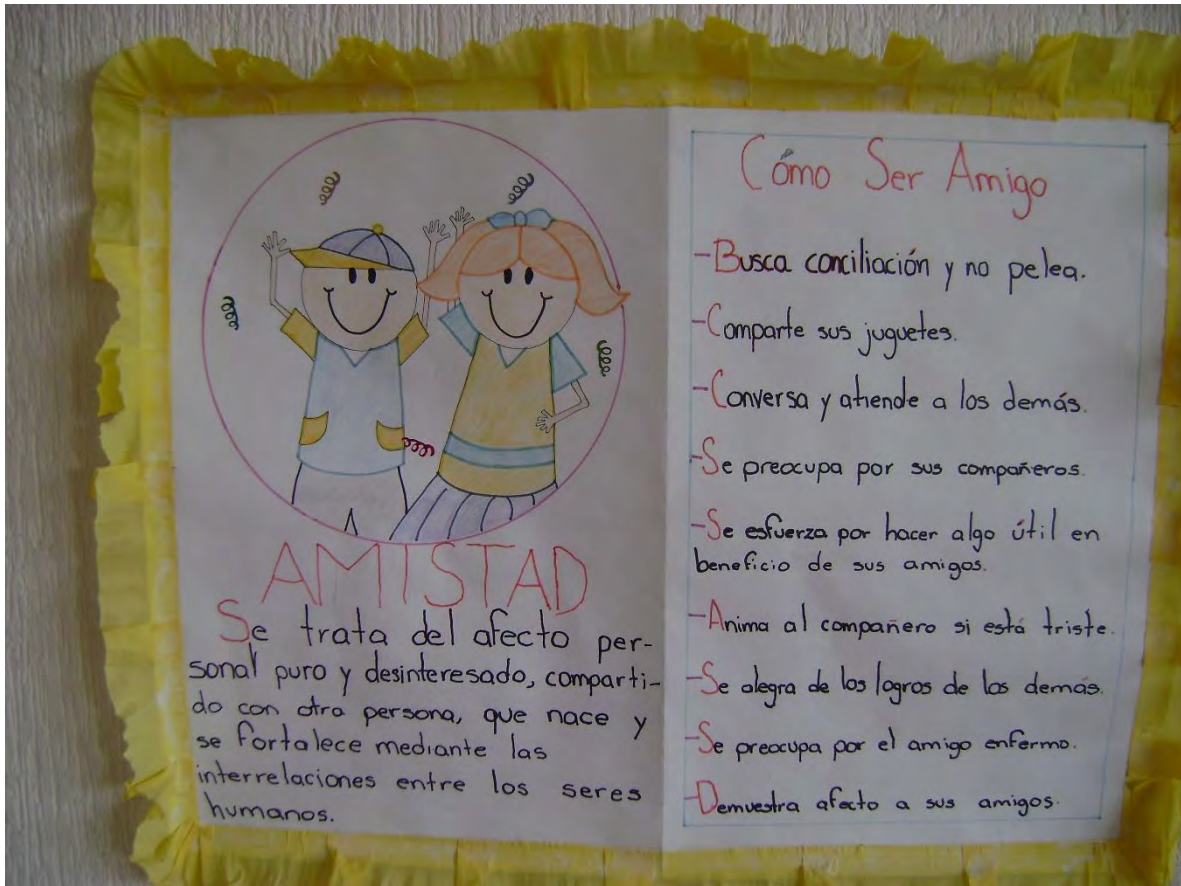 AMISTAD
Se trata del afecto per-
sonal puro y desinteresado, comparti-
do con otra persona, que nace y
se fortalece mediante las
interrelaciones entre los seres
humanos.
Cómo Ser Amigo
-Busca conciliación y no pelea.
-Comparte sus juguetes.
-Conversa y atiende a los demás.
-Se preocupa por sus compañeros.
-Se esfuerza por hacer algo útil en
beneficio de sus amigos.
-Anima al compañero si está triste.
-Se alegra de los logros de los demás.
-Se preocupa por el amigo enfermo.
-Demuestra afecto a sus amigos.